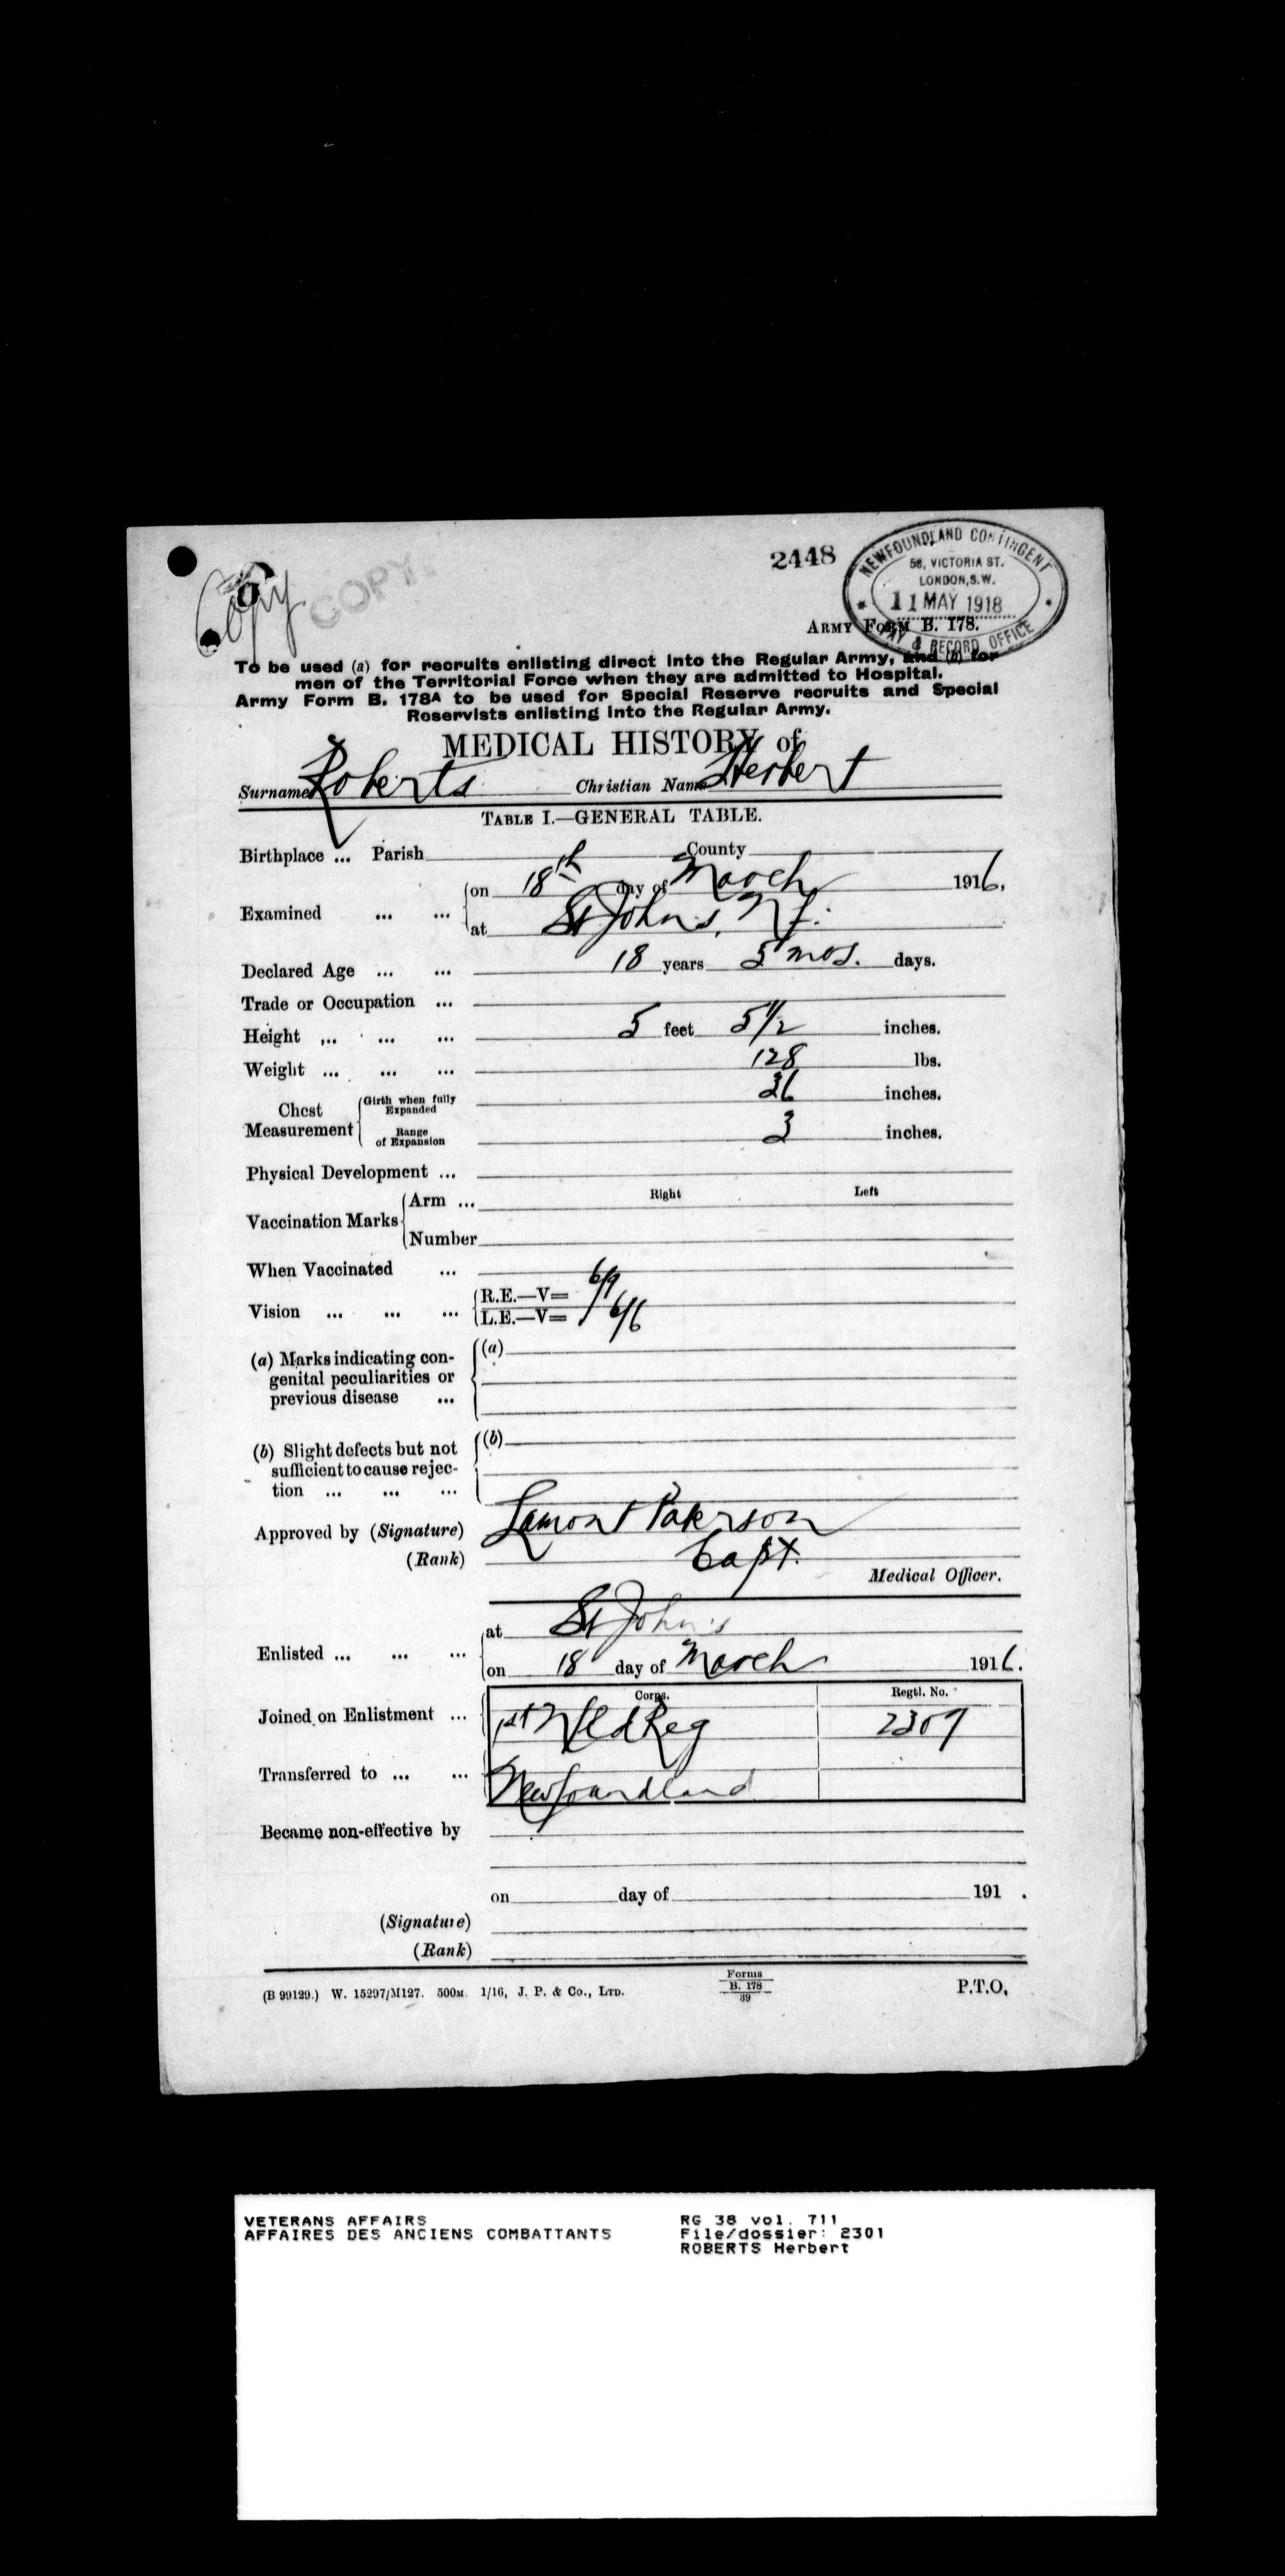 Copy
COPY.
2448
NEWFOUNDLAND CONTINGENT
58, VICTORIA ST.
LONDON, S.W.
11 MAY 1918
PAY & RECORD OFFICE
ARMY FORM B. 178.
To be used (a) for recruits enlisting direct into the Regular Army, and (b) for
men of the Territorial Force when they are admitted to Hospital.
Army Form B. 178A to be used for Special Reserve recruits and Special
Reservists enlisting into the Regular Army.
MEDICAL HISTORY of
Surname Roberts Christian Name Herbert
TABLE I.—GENERAL TABLE.
Birthplace ... Parish County
Examined ... ... on 18th day of March 1916,
at St Johns, Nf.
Declared Age ... ... 18 years 5 mos. days.
Trade or Occupation ...
Height ... ... ... 5 feet 5 1/2 inches.
Weight ... ... ... 128 lbs.
Chest Measurement Girth when fully Expanded 36 inches.
Range of Expansion 3 inches.
Physical Development ...
Right Left
Vaccination Marks Arm ...
Number
When Vaccinated ...
Vision ... ... ... R.E.—V= 6/9
L.E.—V= 6/6
(a) Marks indicating con-
genital peculiarities or
previous disease ...
(a)
(b) Slight defects but not
sufficient to cause rejec-
tion ... ... ...
(b)
Approved by (Signature) Lamont Paterson
(Rank) Capt.
Medical Officer.
Enlisted ... ... ... at St John's
on 18 day of March 1916.
Corps. Regtl. No.
Joined on Enlistment ... 1st Nfld Reg 2307
Transferred to ... ... Newfoundland
Became non-effective by
on day of 191 .
(Signature)
(Rank)
(B 99129.) W. 15297/M127. 500M. 1/16, J. P. & Co., LTD.
Forms
B. 178
39
P.T.O.
VETERANS AFFAIRS
AFFAIRES DES ANCIENS COMBATTANTS
RG 38 vol. 711
File/dossier: 2301
ROBERTS Herbert